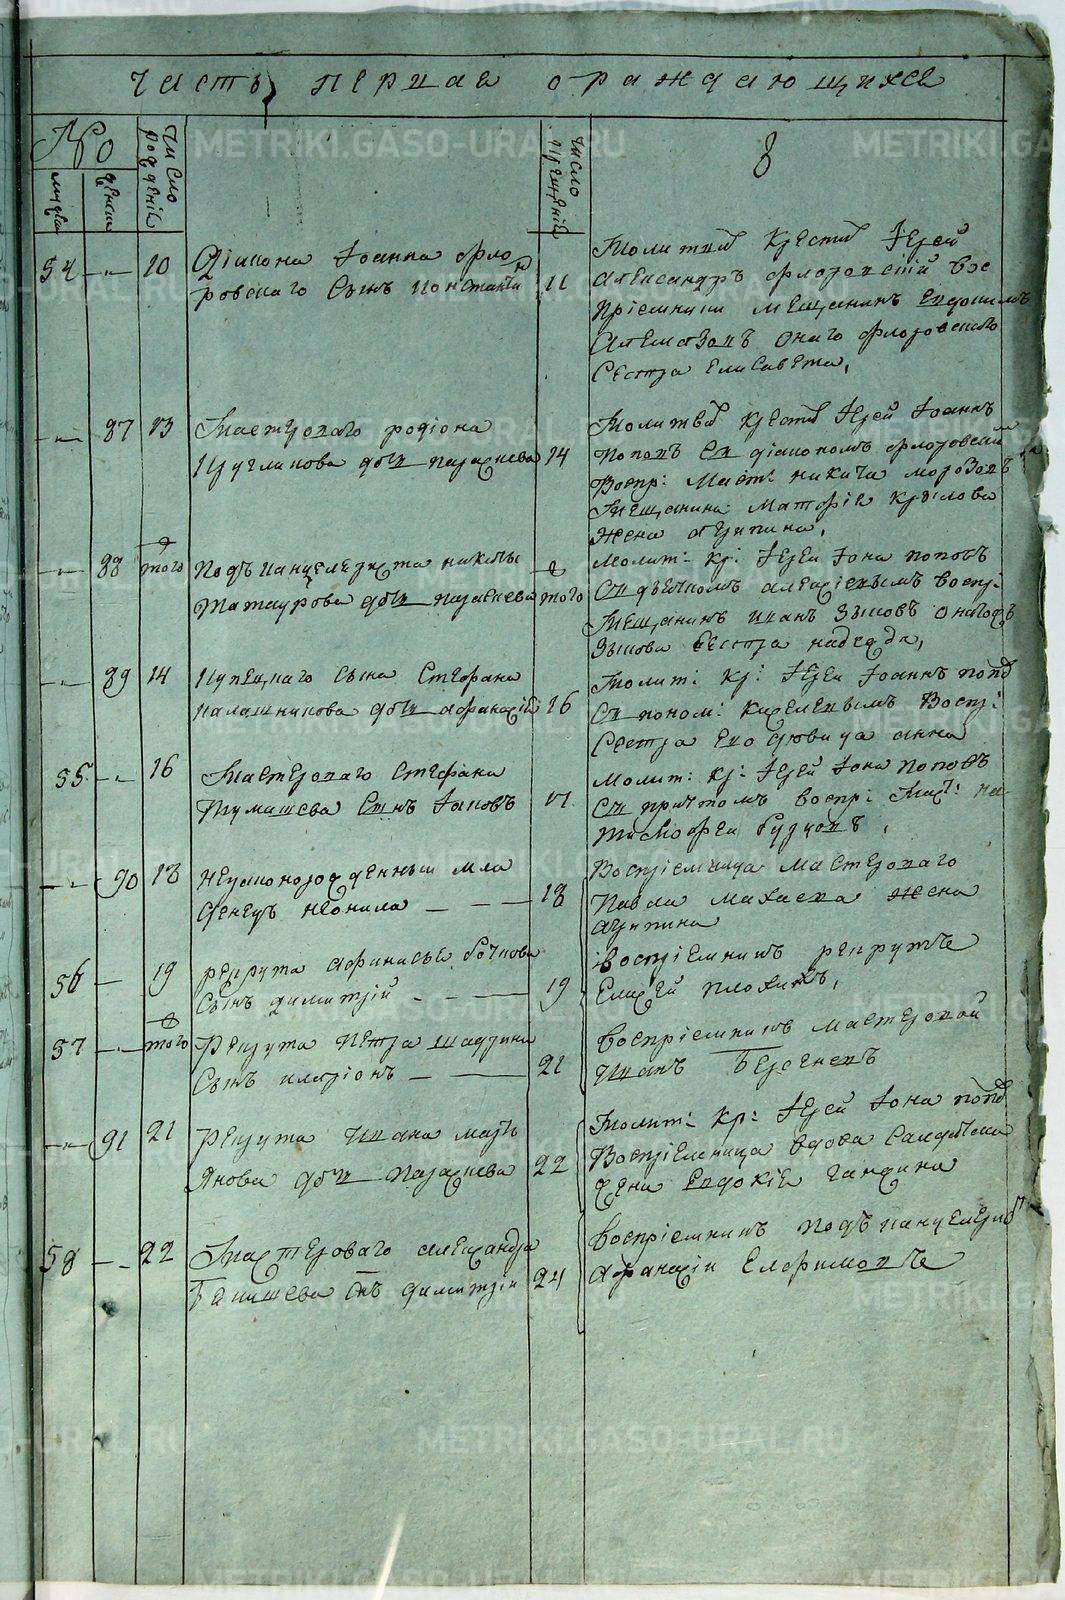 часть первая о раждающихся
№
мужеска
женска
число рожденiя
число крещенiя
8
54 10
Дiакона Iоанна Флоровскаго Сынъ Константин
11
Молитвил Крестил Iерей
Александръ Флоровскiй вос
прiемники мещанинъ Евдокимъ
онаго Флоровскаго
Сестра Елисавета,
87 13
Мастероваго родiона
Кругликова дочь параскева
14
Молитвил Крестил Iерей Iоаннъ
поповъ съ дiакономъ Флоровским
Воспр: Маст: никита морозовъ
Мещанина Крылова
жена агрипина,
88 того
Подъканцеляриста никиты
Татаурова дочь параскева
того
молит: Кр: Iерей Iона поповъ
Съ дьячкомъ воспрi
Мещанинъ иванъ Зыковъ онагожъ
Зыкова Сестра надежда,
89 14
Купецкаго сына Стефана
Калашникова дочь
16
Молит: Кр: Iерей Iоаннъ попов
Съ поном: Киселевымъ Воспр:
Сестра Его девица анна
55 16
Мастероваго Стефана
Тумашева Сынъ Iаковъ
17
молит: Кр: Iерей Iона поповъ
Съ причтомъ воспр: Маст:
Тимофей
90 18
Незаконорожденный мла
денецъ неонила
18
Воспрiемница Мастероваго
Павла жена
агрипина
56 19
рекрута афанасья бочкова
Сынъ димитрiй
19
воспрiемникъ рекрутъ
Елисей плохихъ,
57 того
Рекрута петра шадрина
Сынъ иларiонъ
21
воспрiемникъ мастеровой
Иванъ
91 21
Рекрута Ивана март
янова дочь параскева
22
Молит: Кр: Iерей Iона попов
Воспрiемница вдова Салдатская
жена Евдокiя
58 22
Мастероваго александра
Сынъ димитрiй
24
воспрiемникъ подъканцелярист
афанасiй
METRIKI.GASO-URAL.RU